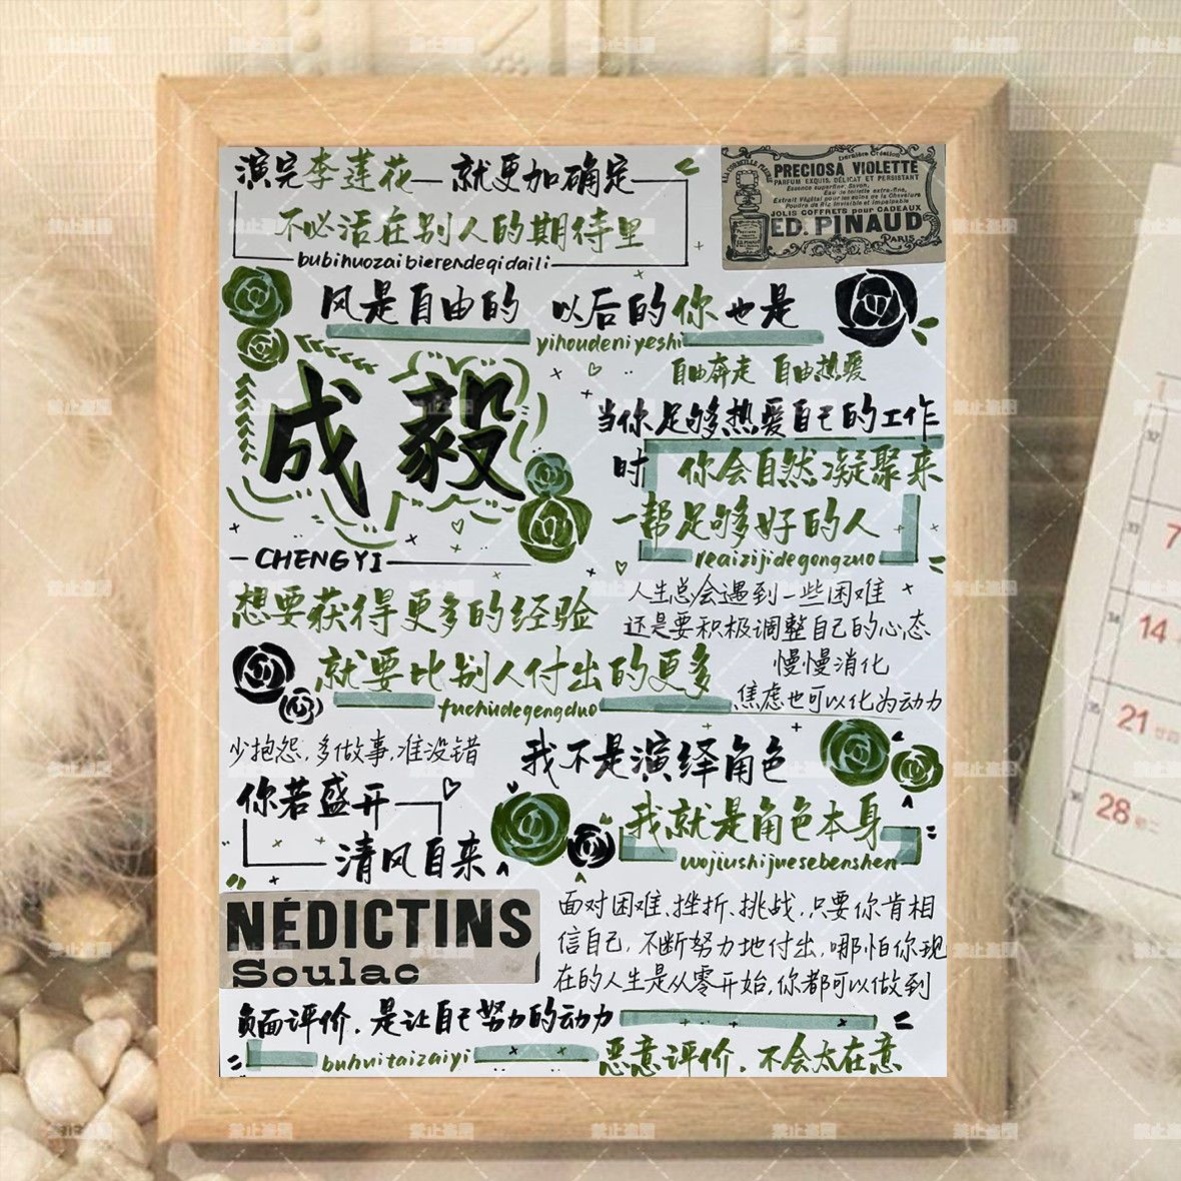 演完李莲花 就更加确定
不必活在别人的期待里
bubihuozaibierendeqidaili
Dernière Création
PRECIOSA VIOLETTE
PARFUM EXQUIS, DÉLICAT ET PERSISTANT
JOLIS COFFRETS pour CADEAUX
ED. PINAUD
PARIS
风是自由的 以后的你也是
yihoudeniyeshi
自由奔走 自由热爱
成毅
CHENGYI
当你足够热爱自己的工作
时 你会自然凝聚来
一帮足够好的人
reaizijidegongzuo
想要获得更多的经验
就要比别人付出的更多
fuchudegengduo
人生总会遇到一些困难
还是要积极调整自己的心态
慢慢消化
焦虑也可以化为动力
少抱怨,多做事,准没错
你若盛开
清风自来
我不是演绎角色
我就是角色本身
wojiushijuesebenshen
NÉDICTINS
Soulac
面对困难、挫折、挑战,只要你肯相
信自己,不断努力地付出,哪怕你现
在的人生是从零开始,你都可以做到
负面评价,是让自己努力的动力
buhuitaizaiyi
恶意评价,不会太在意
7
14
21
28
禁止盗图